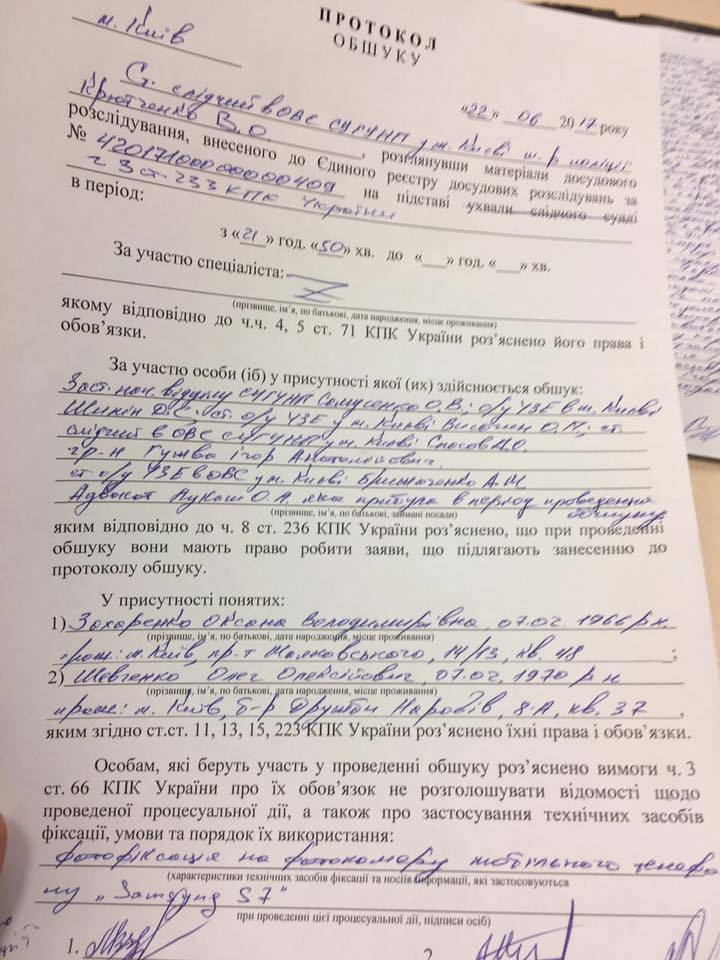 м. Київ
ПРОТОКОЛ
ОБШУКУ
«22» 06 2017 року
Ст. слідчий ВОВС СУ ГУНП у м. Києві
В.О. , розглянувши матеріали досудового
розслідування, внесеного до Єдиного реєстру досудових розслідувань за
№ 42017100000000409 на підставі ухвали слідчого судді
ч 3 ст. 233 КПК України
в період:
з «21» год. «50» хв. до «___» год. «___» хв.
За участю спеціаліста:
(прізвище, ім’я, по батькові, дата народження, місце проживання)
якому відповідно до ч.ч. 4, 5 ст. 71 КПК України роз’яснено його права і
обов’язки.
За участю особи (іб) у присутності якої (их) здійснюється обшук:
Заст. нач. відділу СУ ГУНП О.В.; о/у УЗЕ в м. Києві
о/у УЗЕ у м. Києві О.М.; ст.
слідчий в ОВС СУ ГУНП у м. Києві
гр-н Гужва Ігор Анатолійович
ст о/у УЗЕ в ОВС у м. Києві А.М.
Адвокат Лукаш О.Л. яка прибула в період проведення
обшуку
(прізвище, ім’я, по батькові, займані посади)
яким відповідно до ч. 8 ст. 236 КПК України роз’яснено, що при проведенні
обшуку вони мають право робити заяви, що підлягають занесенню до
протоколу обшуку.
У присутності понятих:
1) Захаренко Оксана Володимирівна, 07.02.1966 р.н.
(прізвище, ім’я, по батькові, дата народження, місце проживання)
прож: м. Київ, пр-т Маяковського, 14/13, кв. 48 ;
2) Шевченко Олег Олексійович, 07.02.1970 р н
(прізвище, ім’я, по батькові, дата народження, місце проживання)
прож: м. Київ, б-р Дружби Народів, 8-А, кв. 37 ,
яким згідно ст.ст. 11, 13, 15, 223 КПК України роз’яснено їхні права і обов’язки.
Особам, які беруть участь у проведенні обшуку роз’яснено вимоги ч. 3
ст. 66 КПК України про їх обов’язок не розголошувати відомості щодо
проведеної процесуальної дії, а також про застосування технічних засобів
фіксації, умови та порядок їх використання:
фотофіксація на фотокамеру мобільного телефо
(характеристики технічних засобів фіксації та носіїв інформації, які застосовуються
ну „Samsung S7“
при проведенні цієї процесуальної дії, підписи осіб)
1. 2.